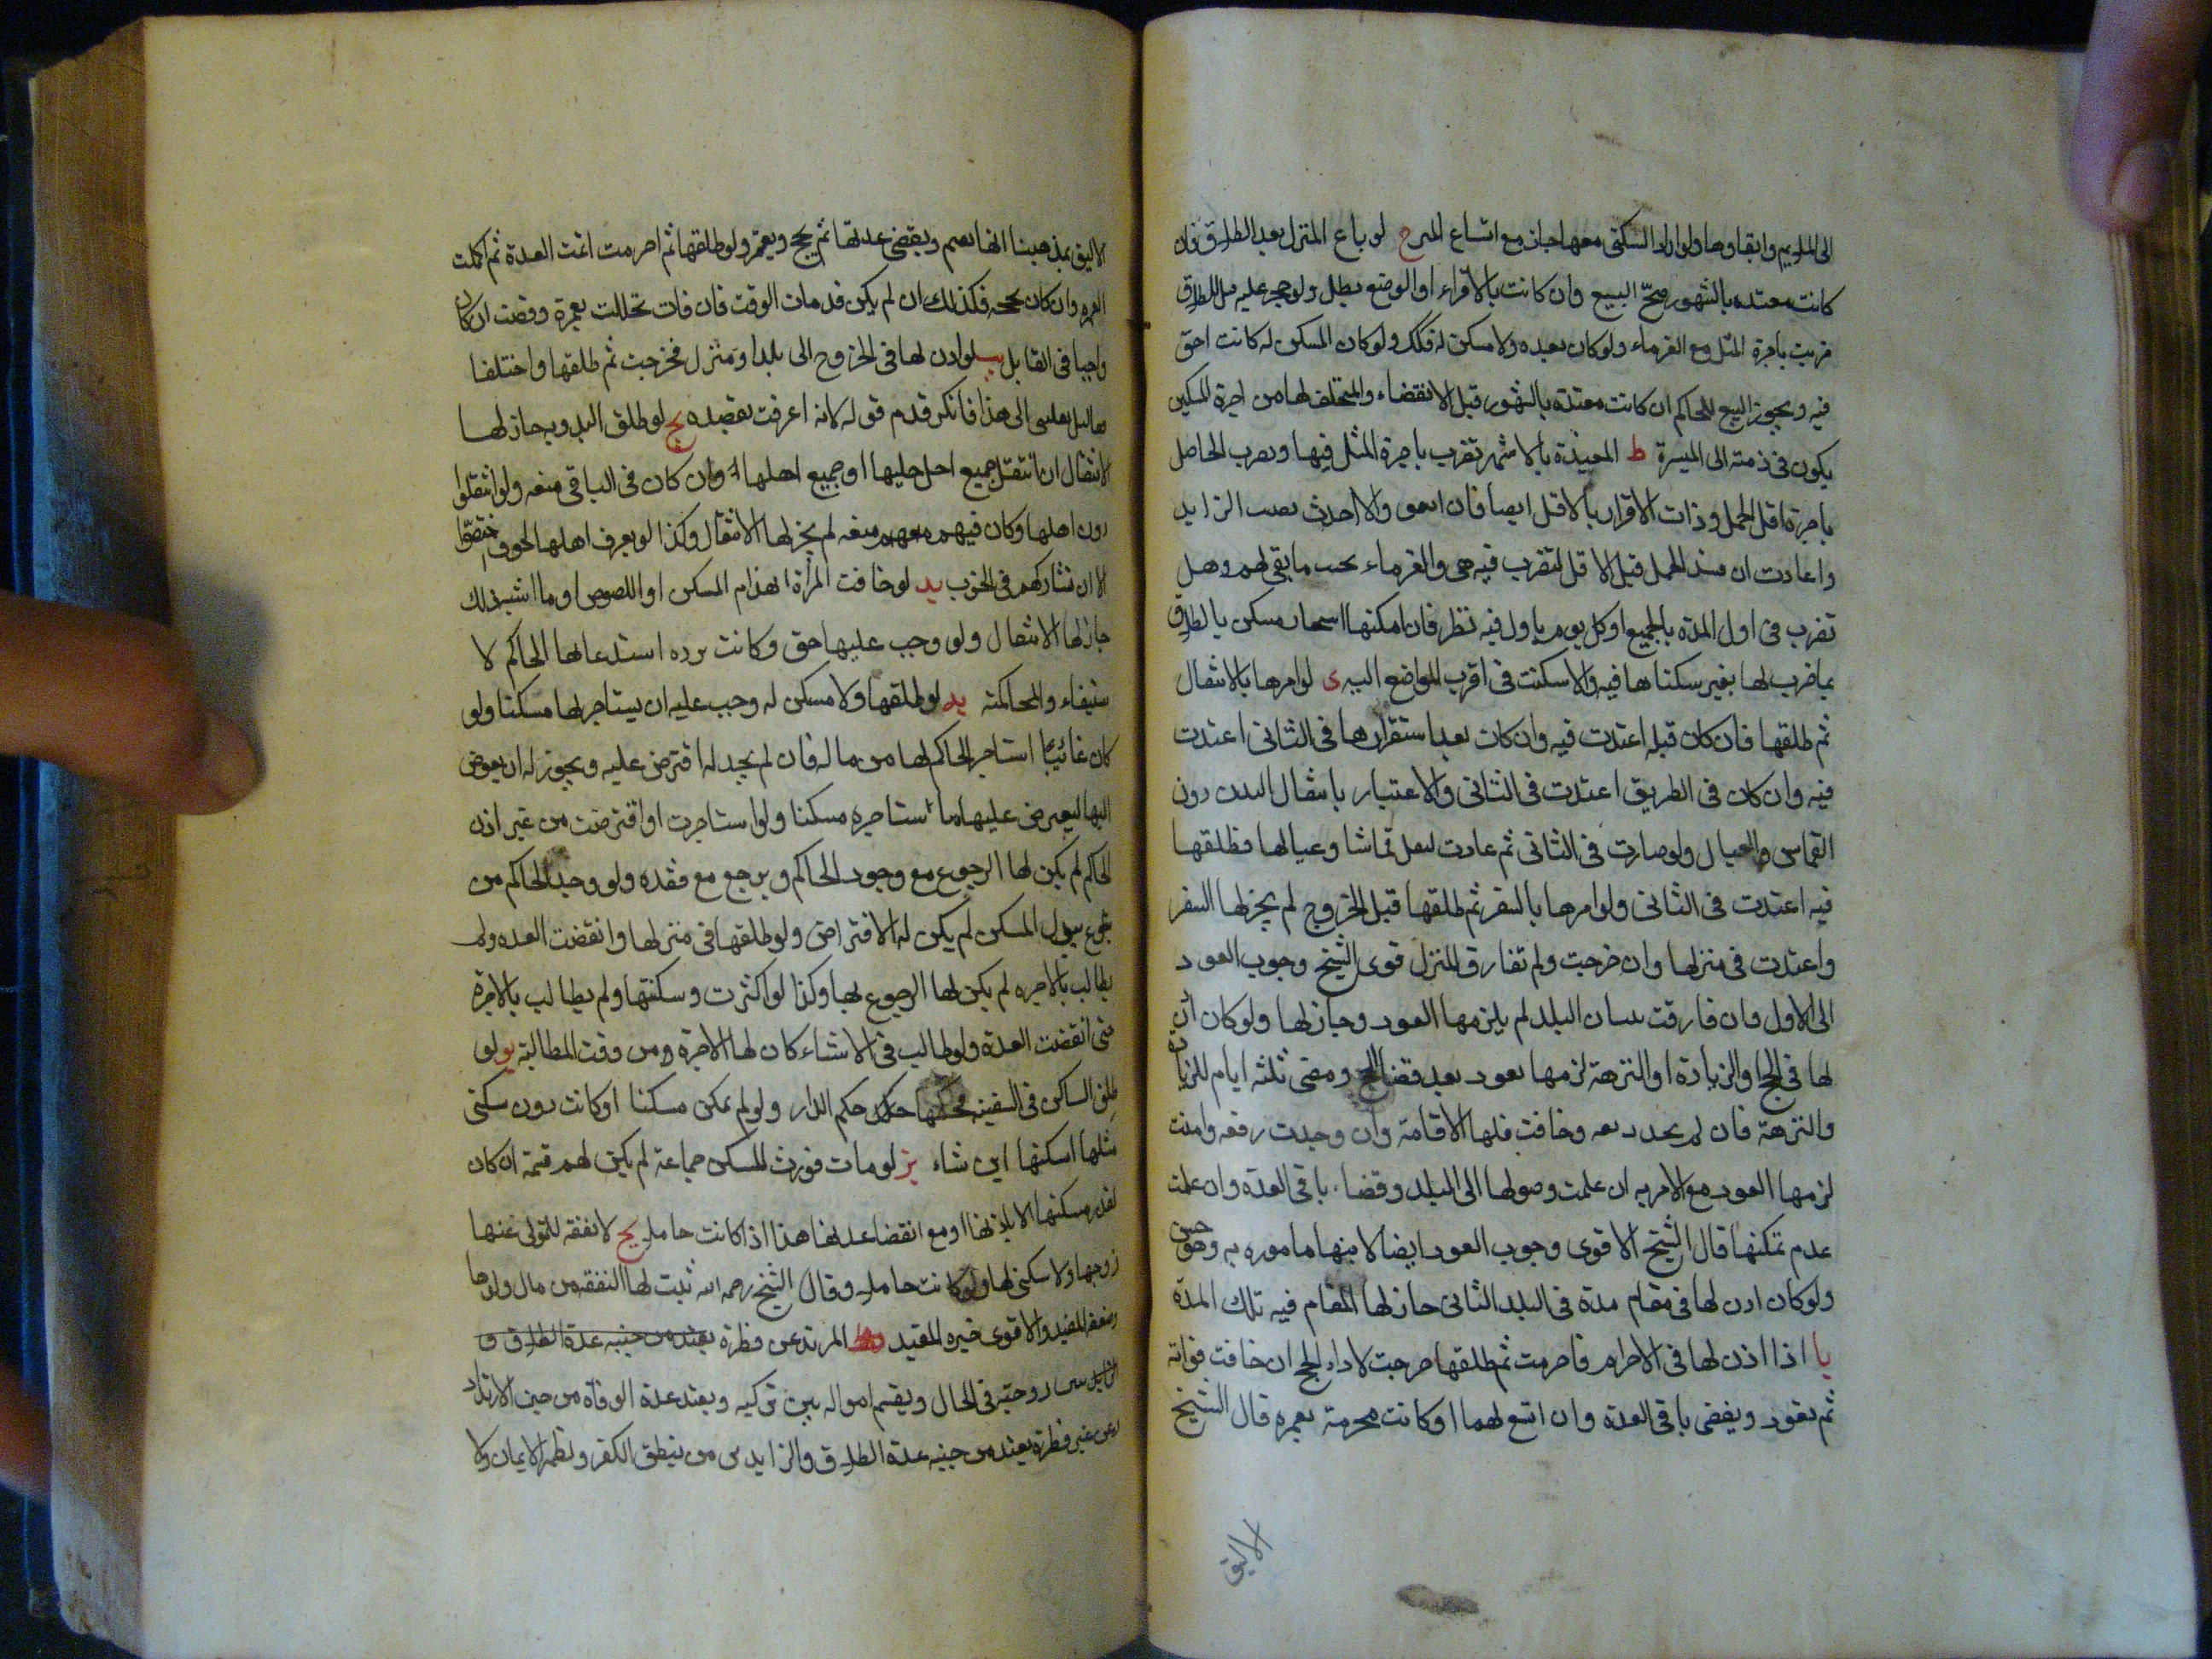 الى الملايم وابقاوها ولو اراد السكنى معها جاز مع اتساع المنزل ح لو باع المنزل بعد الطلاق فان
كانت معتده بالشهور صحّ البيع وان كانت بالاقراء او الوضع بطل ولو حجر عليه قبل الطلاق
ضربت باجرة المثل مع الغرماء ولو كان بعده ولا مسكن له فكك ولو كان المسكن له كانت احق
فيه ويجوز البيع للحاكم ان كانت معتدة بالشهور قبل الانقضاء والمتخلف لها من اجرة المسكن
يكون فى ذمته الى الميسرة ط المعتدة بالاشهر تضرب باجرة المثل فيها وتضرب الحامل
باجرة اقل الحمل وذات الاقراء بالاقل ايضا فان اتفق والا اخذت نصيب الزايد
واعادت ان فسد الحمل قبل الاقل لتضرب فيه هى والغرماء بحسب ما بقى لهم وهل
تضرب فى اول المدة بالجميع او كل يوم باول فيه نظر فان امكنها استيجار مسكن بالطلاق
بما ضرب لها بغير سكناها فيه والا سكنت فى اقرب المواضع اليه ى لو امرها بالانتقال
ثم طلقها فان كان قبله اعتدت فيه وان كان بعد استقرارها فى الثانى اعتدت
فيه وان كان فى الطريق اعتدت فى الثانى والاعتبار بانتقال البدن دون
القماش والعيال ولو صارت فى الثانى ثم عادت لنقل قماشا وعيالها فطلقها
فيه اعتدت فى الثانى ولو امرها بالسفر ثم طلقها قبل الخروج لم يجز لها السفر
واعتدت فى منزلها وان خرجت ولم تفارق المنزل قوى الشيخ وجوب العود
الى الاول وان فارقت بنيان البلد لم يلزمها العود وجاز لها ولو كان اذن
لها فى الحج او الزيارة او النزهة لزمها بعود بعد قضا الحج ومضى ثلثه ايام للزيارة
والنزهة فان لم تجد رفقه وخافت فلها الاقامة وان وجدت رفقه وامنت
لزمها العود مع الامر به ان علمت وصولها الى البلد وقضاء باقى العدة وان علمت
عدم تمكنها قال الشيخ الاقوى وجوب العود ايضا لانها ماموره به وهو حسن
ولو كان اذن لها فى مقام مدة فى البلد الثانى جاز لها المقام فيه تلك المدة
يا اذا اذن لها فى الاحرام فاحرمت ثم طلقها خرجت لاداء الحج ان خافت فواته
ثم تعود وتقضى باقى العدة وان اتسع لهما او كانت محرمة بعمره قال الشيخ
الاليق
الاليق بمذهبنا انها تقيم وتقضى عدتها ثم تحج وتعتمر ولو طلقها ثم احرمت اتمت العدة ثم اكملت
العمره وان كان بحجه فكذلك ان لم يكن قد مات الوقت فان فات تحللت بعمرة وقضت ان كان
واجبا فى القابل يب لو اذن لها فى الخروج الى بلد او منزل فخرجت ثم طلقها واختلفا
هل نقلنى الى هذا فانكر قدم قوله لانه اعرف بقصده يج لو طلق البدويه جاز لها
الانتقال ان انتقل جميع اهل حليها او جميع اهلها وان كان فى الباقى منعه ولو انتقلوا
دون اهلها وكان فيهم معهم منعه لم يجز لها الانتقال وكذا لو يعرف اهلها الخوف اختصوا
الا ان تشاركهم فى الخوف يد لو خافت المراة انهدام المسكن او اللصوص او ما اشبه ذلك
جاز لها الانتقال ولو وجب عليها حق وكانت برده استدعاها الحاكم لا
ستيفاء والمحاكمة يه لو طلقها ولا مسكن له وجب عليه ان يستاجر لها مسكنا ولو
كان غائبا استاجر الحاكم لها من ماله فان لم يجد له اقترض عليه ويجوز له ان يفوض
اليها ليقرض عليها ما تستاجره مسكنا ولو استاجرت او اقترضت من غير اذن
الحاكم لم يكن لها الرجوع مع وجود الحاكم ويرجع مع فقده ولو وجد الحاكم من
يتبرع ببذل المسكن لم يكن له الاقتراض ولو طلقها فى منزلها وانقضت العده ولم
يطالب بالاجره لم يكن لها الرجوع بها وكذا لو اكثرت وسكنتها ولم يطالب بالاجرة
حتى انقضت العدة ولو طالب فى الاثناء كان لها الاجرة ومن وقت المطالبة يو لو
طلق الساكن فى السفينه فحكمها حكم الدار ولو لم يمكن مسكنا او كانت دون سكنى
مثلها اسكنها اين شاء يز لو مات فورث المسكن جماعة لم يكن لهم قسمة ان كان
لقدر مسكنها الا باذنها او مع انقضاء عدتها هذا اذا كانت حاملا يح لا نفقه للمتوفى عنها
زوجها ولا سكنى لها ولو كانت حاملا وقال الشيخ رحمه الله ثبت لها النفقه من مال ولدها
وضعفه المفيد والاقوى خيره المفيد يط المرتد عن فطرة يعتد من حينه عدة الطلاق و
الزايد تبين زوجته فى الحال ويقسم امواله بين تركيه ويعتد عدة الوفاة من حين الارتداد
وعن غير فطرة يعتد من حينه عدة الطلاق والزايد من من ينطق الكفر ونظهر الايمان ولا